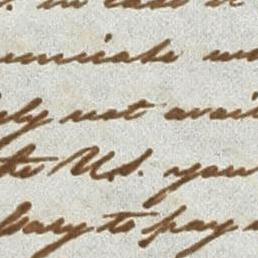 in case it
municate
ly not avail
the U.S. your
sary to pay